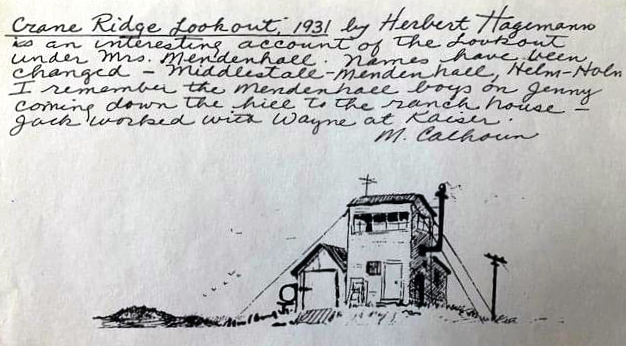 Crane Ridge Lookout, 1931 by Herbert Hagemann
is an interesting account of the Lookout
under Mrs. Mendenhall. Names have been
changed – Middlestall-Mendenhall, Helm-Holm
I remember the Mendenhall boys on Jenny
coming down the hill to the ranch house –
Jack worked with Wayne at Kaiser.
M. Calhoun